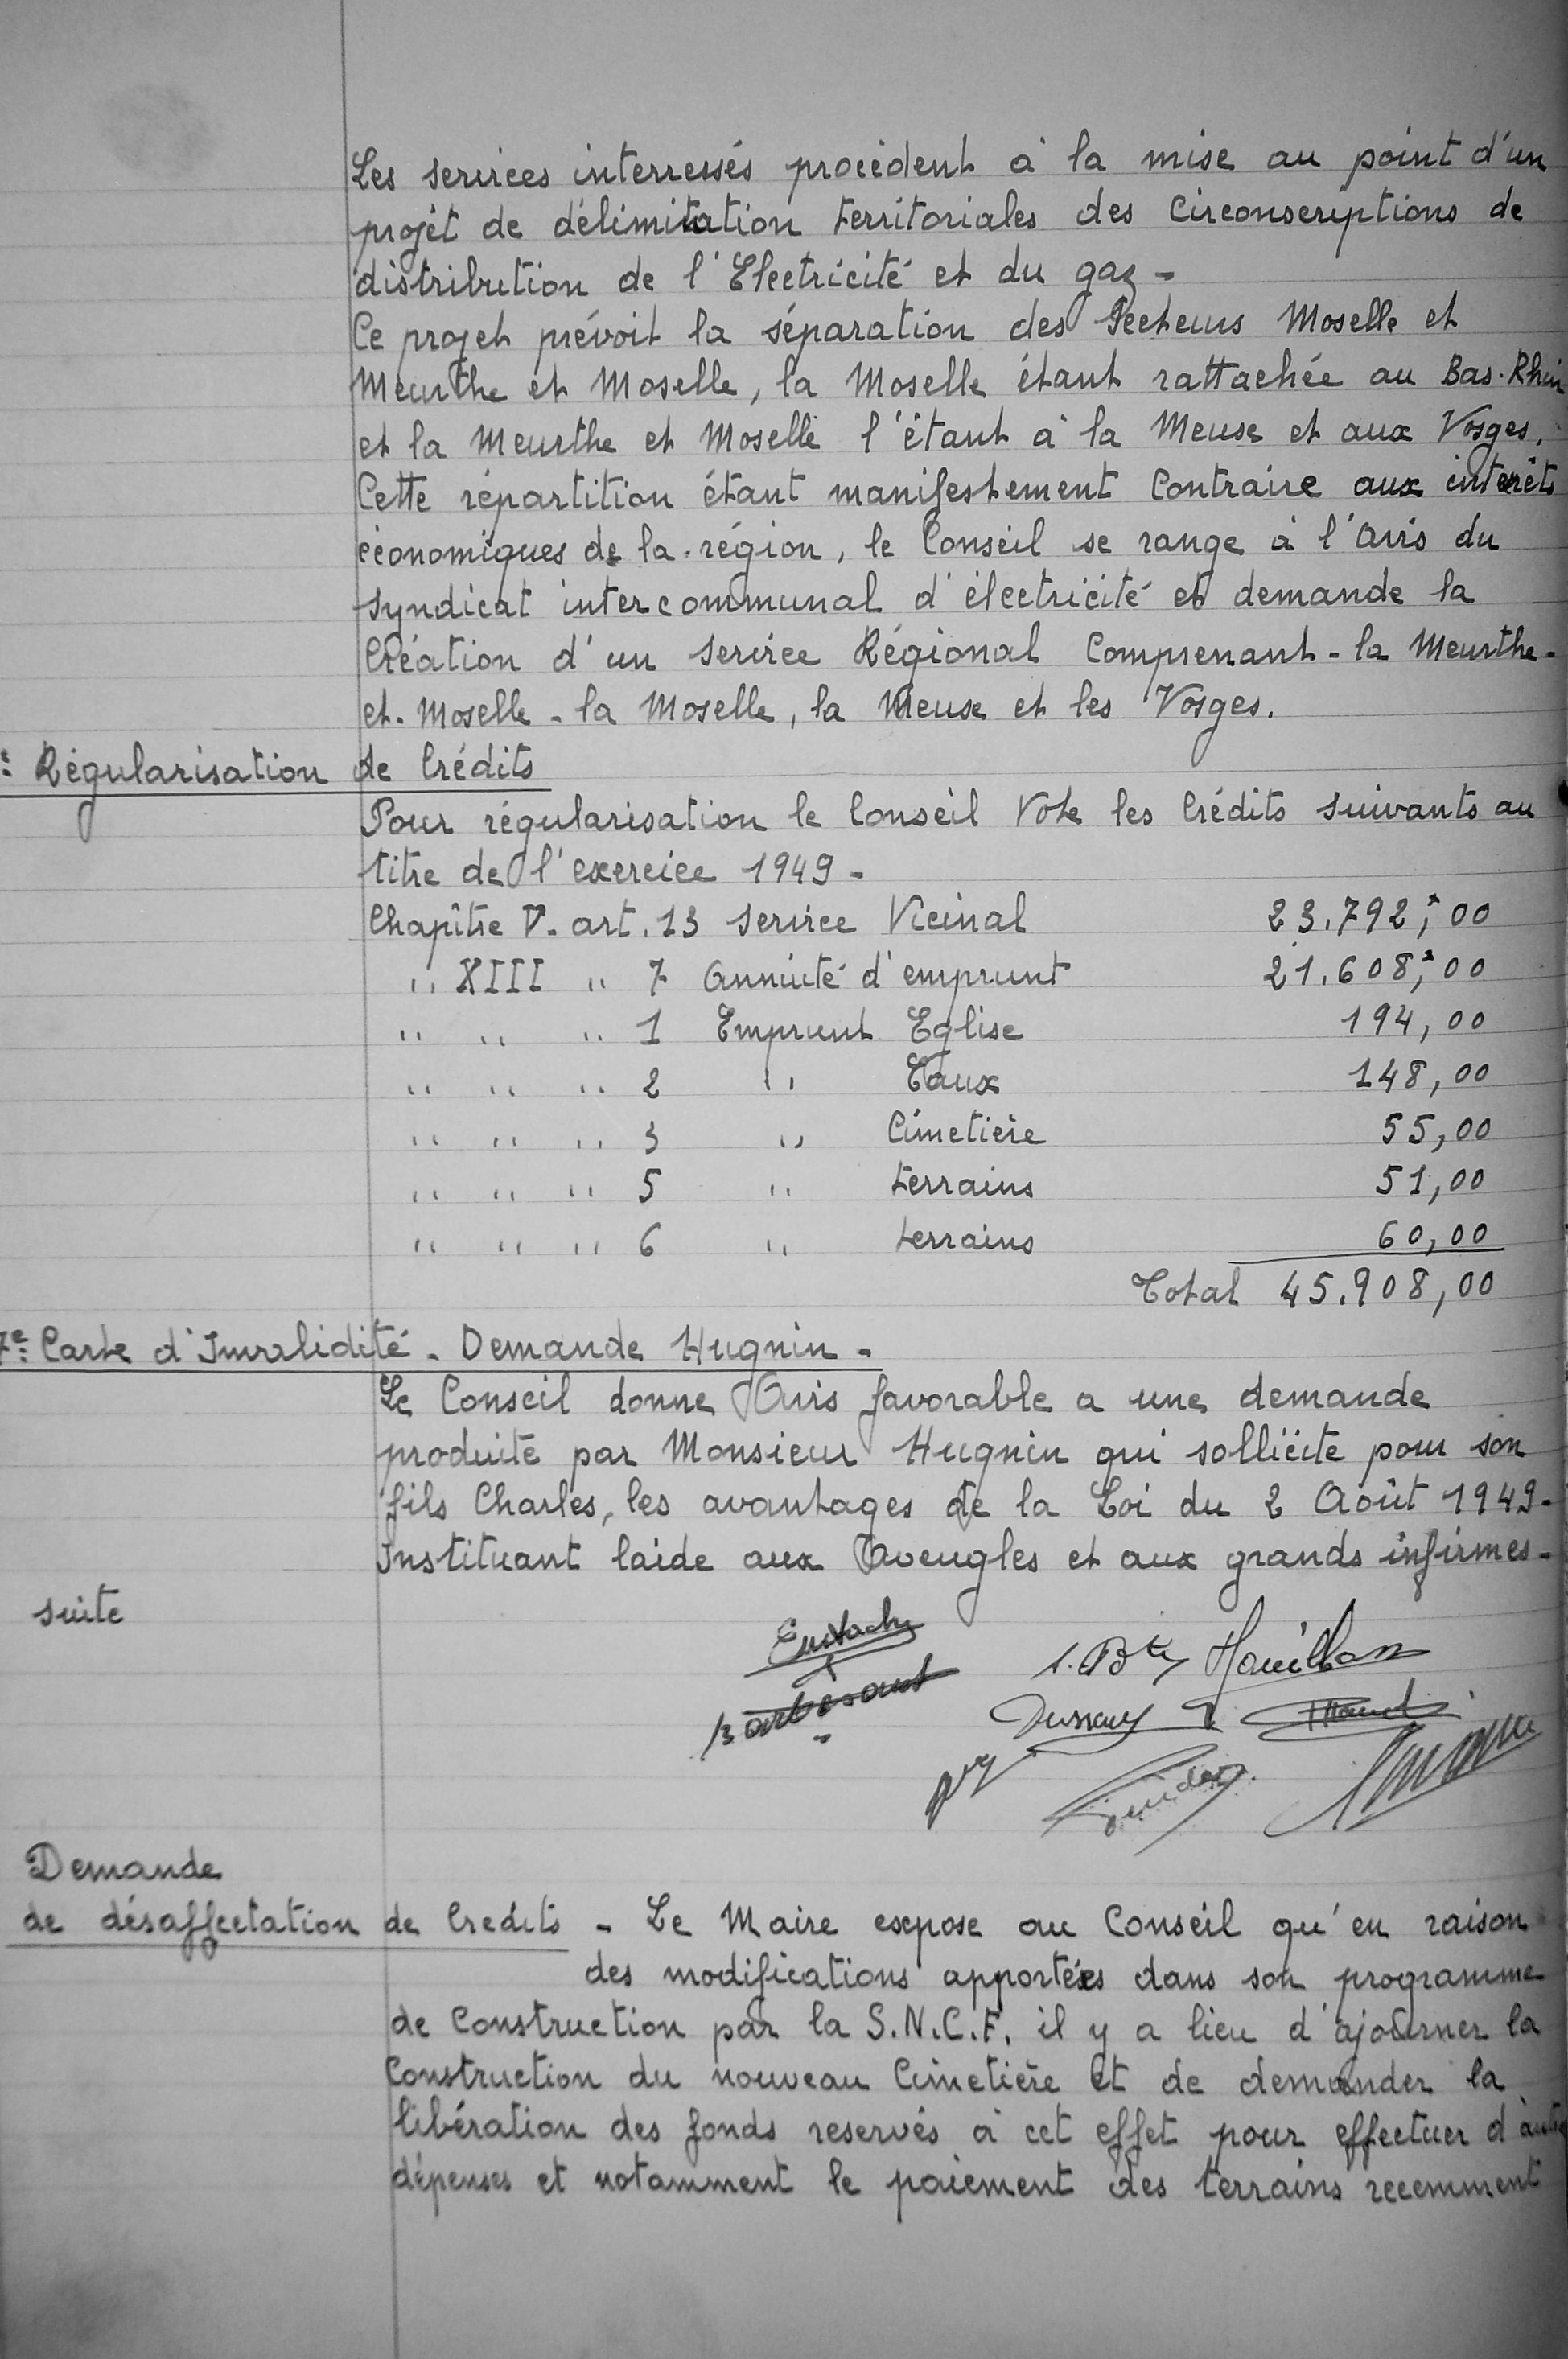 Les services interressés procèdent à la mise au point d'un
projèt de délimitation territoriales des Circonscriptions de
distribution de l'Electricité et du gaz -
Ce projet prévoit la séparation des Secteurs Moselle et
Meurthe et Moselle, la Moselle étant rattachée au Bas-Rhin
et la Meurthe et Moselle l'étant à la Meuse et aux Vosges.
Cette répartition étant manifestement Contraire aux interêts
économiques de la région, le Conseil se range à l'Avis du
Syndicat intercommunal d'électricité et demande la
Création d'un Service Régional Comprenant - la Meurthe-
et-Moselle - la Moselle, la Meuse et les Vosges.
Régularisation de Crédits
Pour régularisation le Conseil Vote les Crédits suivants au
titre de l'exercice 1949 -
Chapître V. art. 13 Service Vicinal 23.792,00
" XIII " 7 Annuité d'emprunt 21.608,00
" " " 1 Emprunt Eglise 194,00
" " " 2 " Eaux 148,00
" " " 3 " Cimetière 55,00
" " " 5 " terrains 51,00
" " " 6 " terrains 60,00
Total 45.908,00
7e: Carte d'Invalidité - Demande Hugnin -
Le Conseil donne Avis favorable a une demande
produite par Monsieur Hugnin qui sollicite pour son
fils Charles, les avantages de la Loi du 2 Août 1949-
Instituant laide aux Aveugles et aux grands infirmes -
suite
Eustache
Barbesant
Demande
de désaffectation de Credits - Le Maire expose au Conseil qu'en raison
des modifications apportées dans son programme
de Construction par la S.N.C.F. il y a lieu d'ajourner la
Construction du nouveau Cimetière et de demander la
libération des fonds reservés à cet effet pour effectuer d'
dépenses et notamment le paiement des terrains recemment